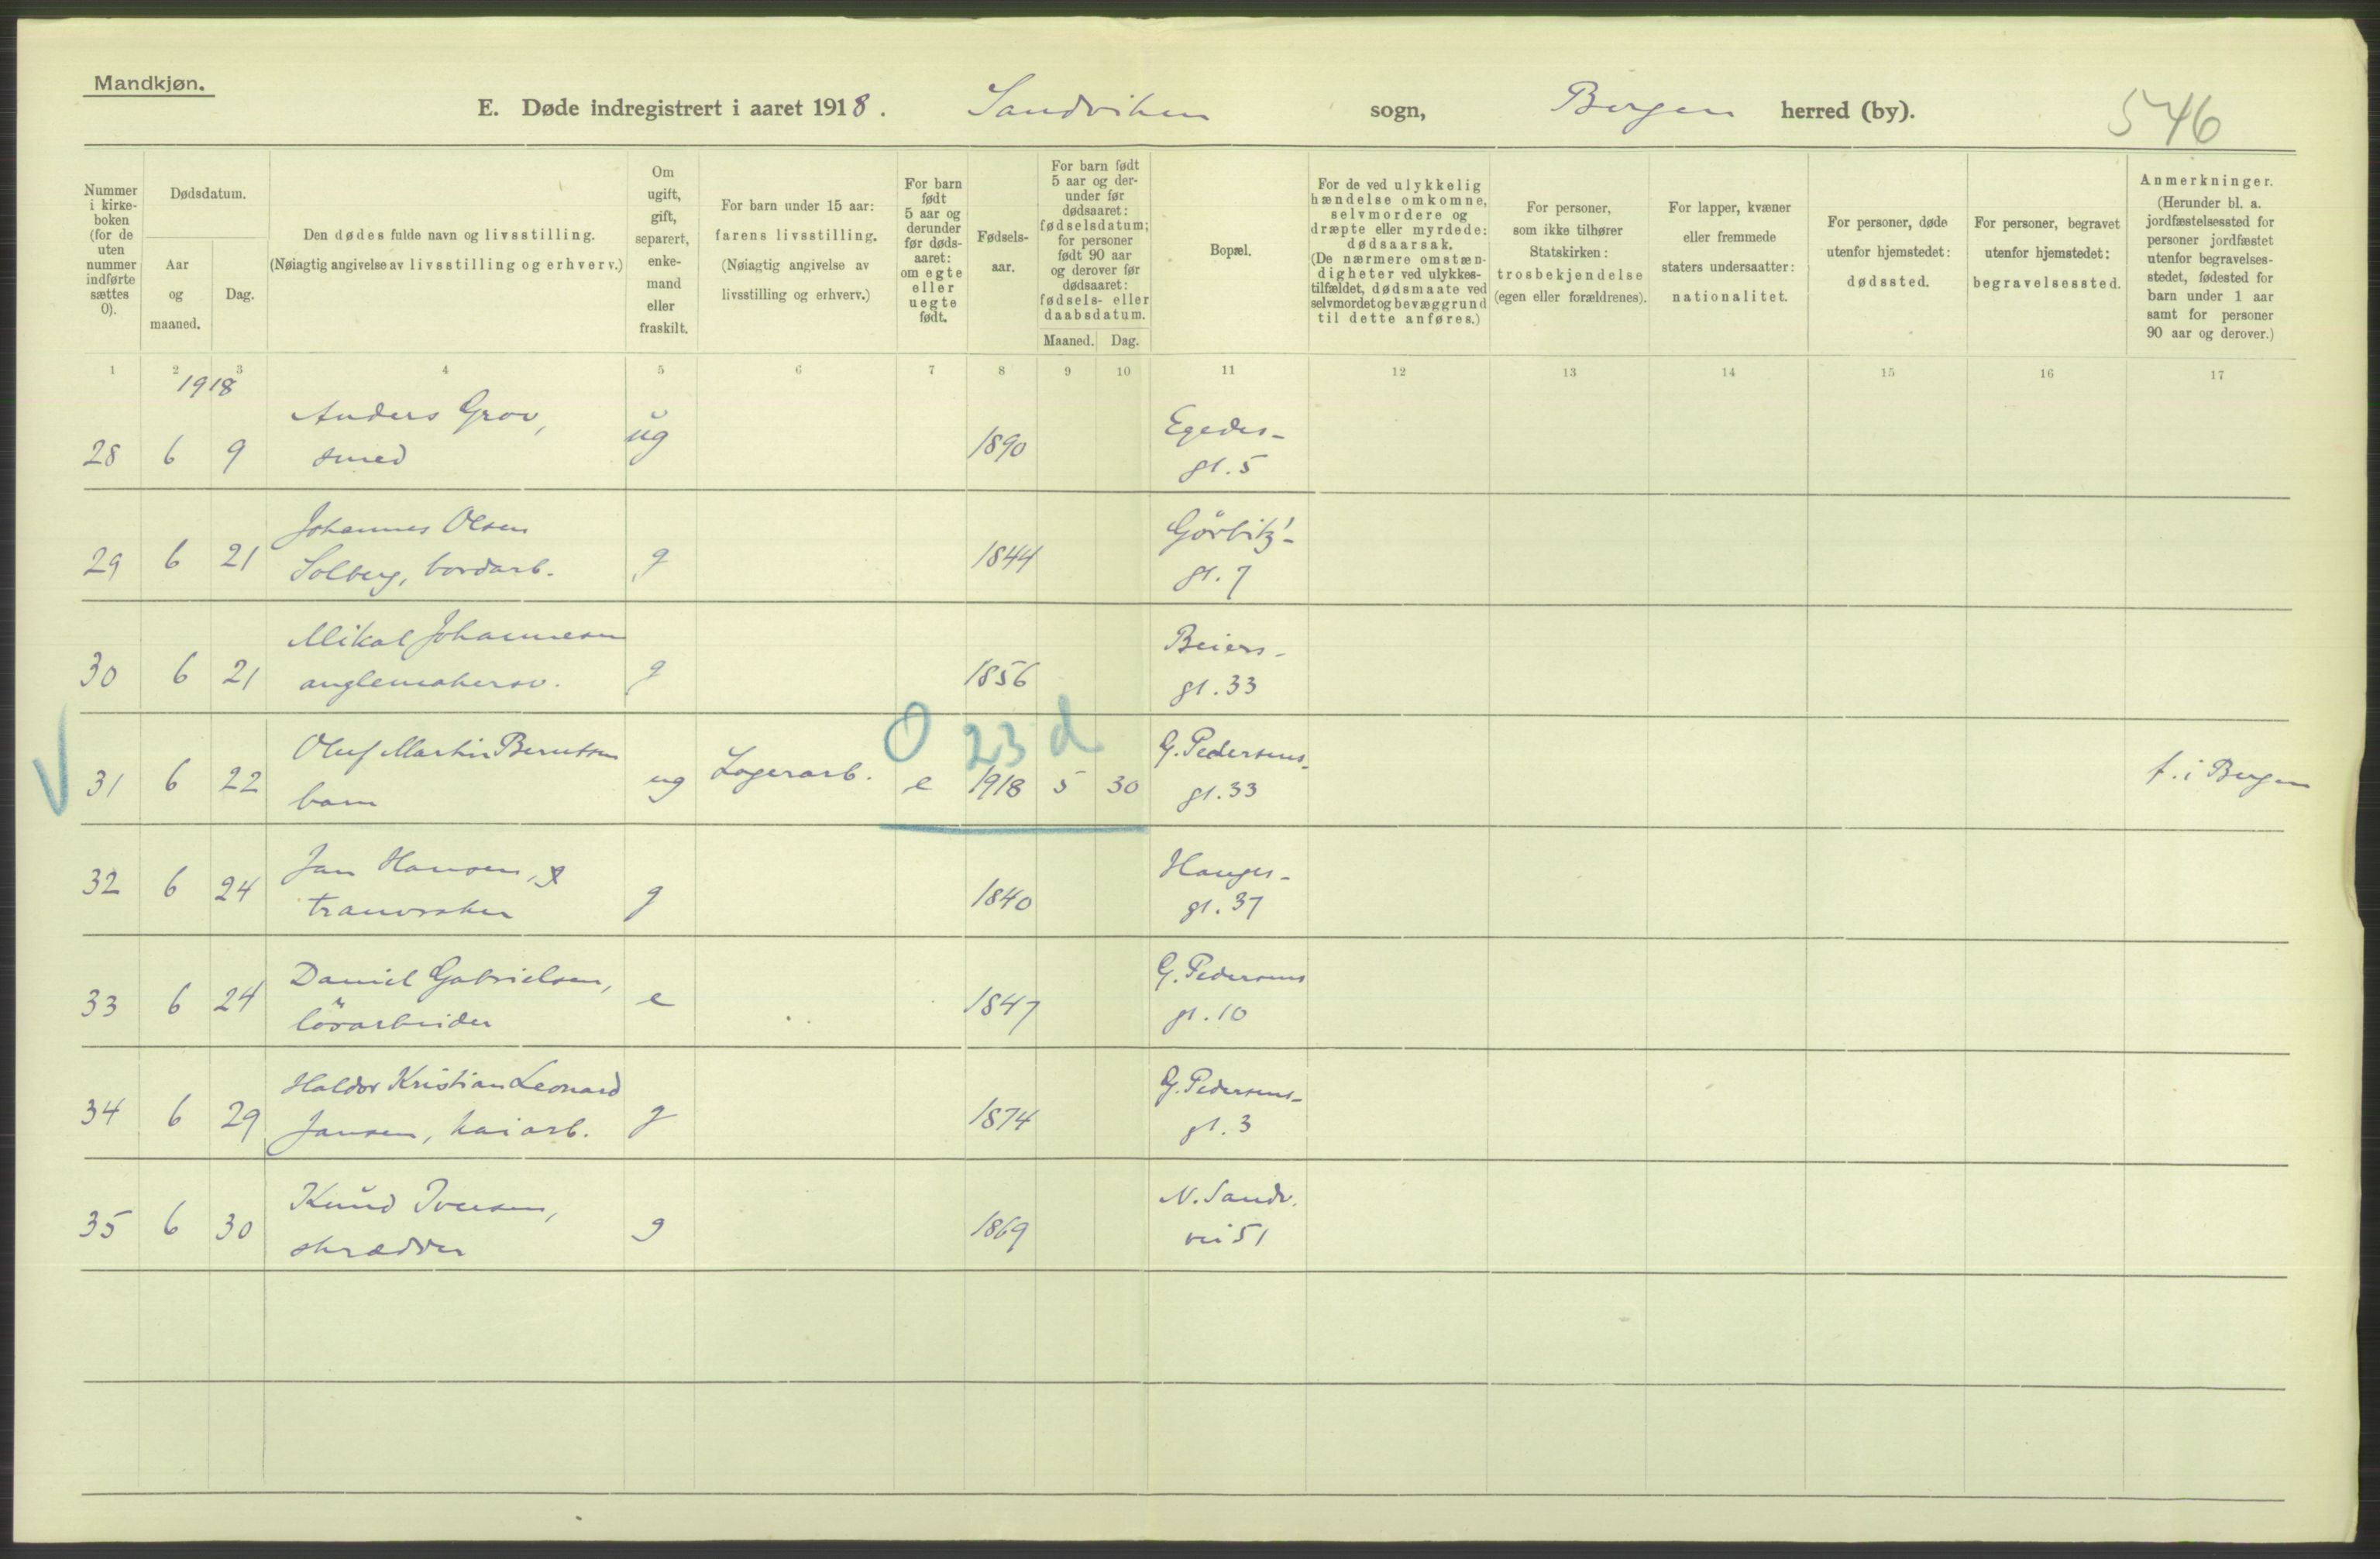 Mandkjøn.
E. Døde indregistrert i aaret 1918. Sandviken sogn, Bergen herred (by). 546
Nummer i kirke-boken (for de uten nummer indførte sættes 0).
Dødsdatum.
Aar og maaned.
Dag.
Den dødes fulde navn og livsstilling.
(Nøiagtig angivelse av livsstilling og erhverv.)
Om ugift, gift, separert, enke-mand eller fraskilt.
For barn under 15 aar:
farens livsstilling.
(Nøiagtig angivelse av
livsstilling og erhverv.)
For barn født 5 aar og derunder før døds-aaret: om egte eller uegte født.
Fødsels-aar.
For barn født 5 aar og der-under før dødsaaret: fødselsdatum; for personer født 90 aar og derover før dødsaaret: fødsels- eller daabsdatum.
Maaned. Dag.
Bopæl.
For de ved ulykkelig hændelse omkomne, selvmordere og dræpte eller myrdede: dødsaarsak.
(De nærmere omstæn-digheter ved ulykkes-tilfældet, dødsmaate ved selvmordet og bevæggrund til dette anføres.)
For personer, som ikke tilhører Statskirken: trosbekjendelse (egen eller forældrenes).
For lapper, kvæner eller fremmede staters undersaatter: nationalitet.
For personer, døde utenfor hjemstedet: dødssted.
For personer, begravet utenfor hjemstedet: begravelsessted.
Anmerkninger.
(Herunder bl. a. jordfæstelsessted for personer jordfæstet utenfor begravelses-stedet, fødested for barn under 1 aar samt for personer 90 aar og derover.)
1 2 3 4 5 6 7 8 9 10 11 12 13 14 15 16 17
1918
Anders Grov, ug Egedes-
28 6 9 smed 1890 gt. 5
Johannes Olsen Görbitz'-
29 6 21 Solberg, bordarb. g 1844 gt. 7
Mikal Johannesen Beiers-
30 6 21 anglemakersv. g 1856 gt. 33
0 23 d
Oluf Martin Berntsen G. Pedersens-
31 6 22 barn ug Lagerarb. e 1918 5 30 gt. 33 f. i Bergen
Jan Hansen, Hauges-
32 6 24 tranvraker g 1840 gt. 37
Daniel Gabrielsen, G. Pedersens
33 6 24 løsarbeider e 1847 gt. 10
Haldor Kristian Leonard G. Pedersens-
34 6 29 Jansen, kaiarb. g 1874 gt. 3
Knud Iversen, N. Sandv.
35 6 30 skrædder g 1869 vei 51